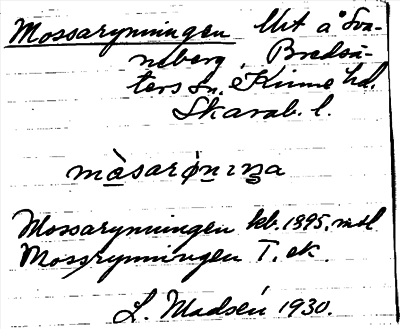 Mossarymningen Utt å Sva-
neberg, Bredsä-
ters sn, Kinne hd.
Skarab. l.
màsarømɩŋa
Mossarymningen kb. 1895, må
Mossrymningen T. ek.
L. Madsén 1930.